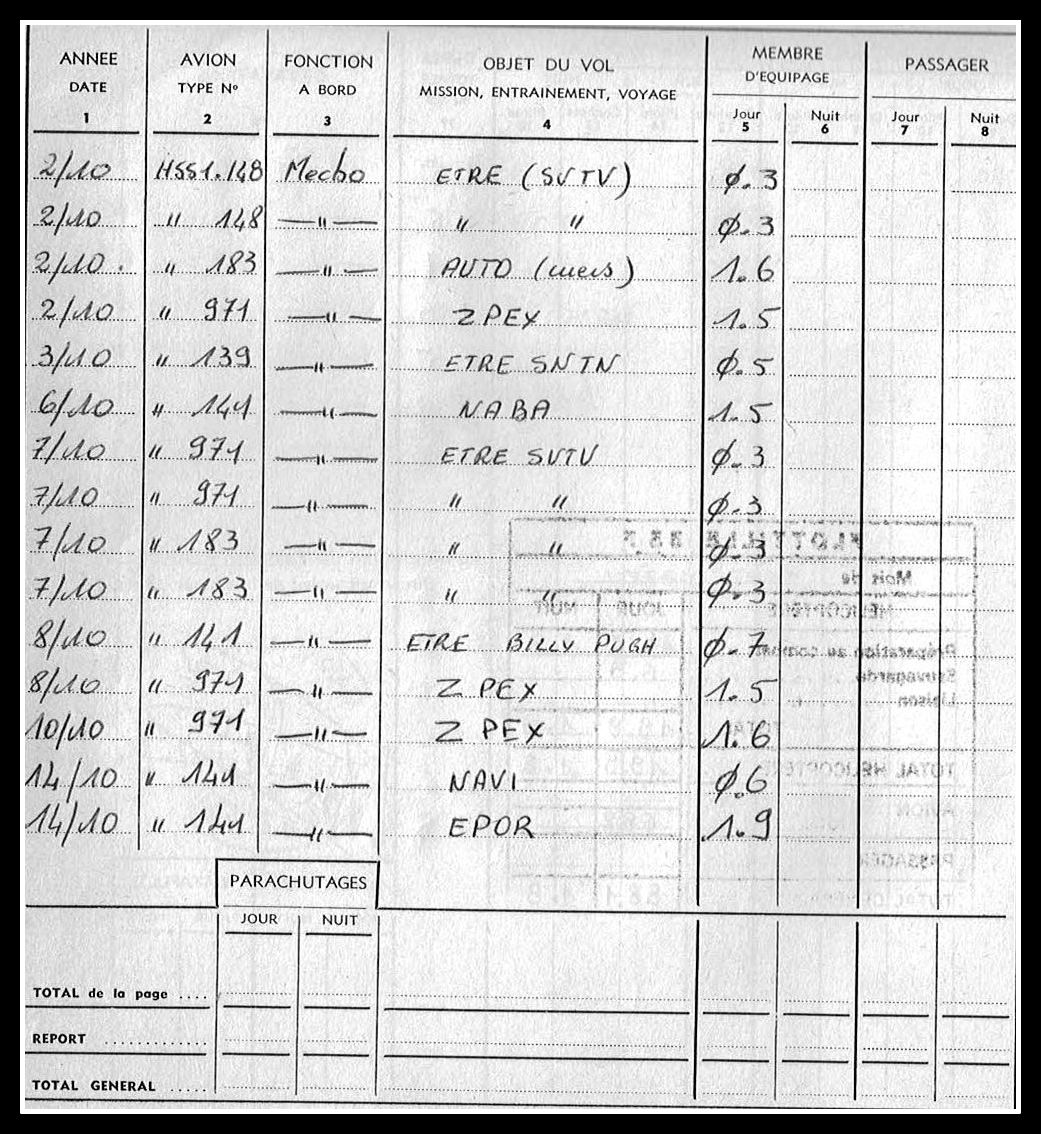 ANNEE AVION FONCTION OBJET DU VOL MEMBRE D'EQUIPAGE PASSAGER
DATE TYPE Nº A BORD MISSION, ENTRAINEMENT, VOYAGE Jour Nuit Jour Nuit
1 2 3 4 5 6 7 8
2/10 HSS1.148 Mecbo ETRE (SVTV) Ø.3
2/10 " 148 —"— " " Ø.3
2/10. " 183 —"— AUTO ( ) 1.6
2/10 " 971 —"— ZPEX 1.5
3/10 " 139 —"— ETRE SNTN Ø.5
6/10 " 141 —"— NABA 1.5
7/10 " 971 —"— ETRE SVTV Ø.3
7/10 " 971 —"— " " Ø.3
7/10 " 183 —"— " " Ø.3
7/10 " 183 —"— " " Ø.3
8/10 " 141 —"— ETRE BILLY PUGH Ø.7
8/10 " 971 —"— Z PEX 1.5
10/10 " 971 —"— Z PEX 1.6
14/10 " 141 —"— NAVI Ø.6
14/10 " 141 —"— EPOR 1.9
PARACHUTAGES
JOUR NUIT
TOTAL de la page ....
REPORT ............
TOTAL GENERAL .....